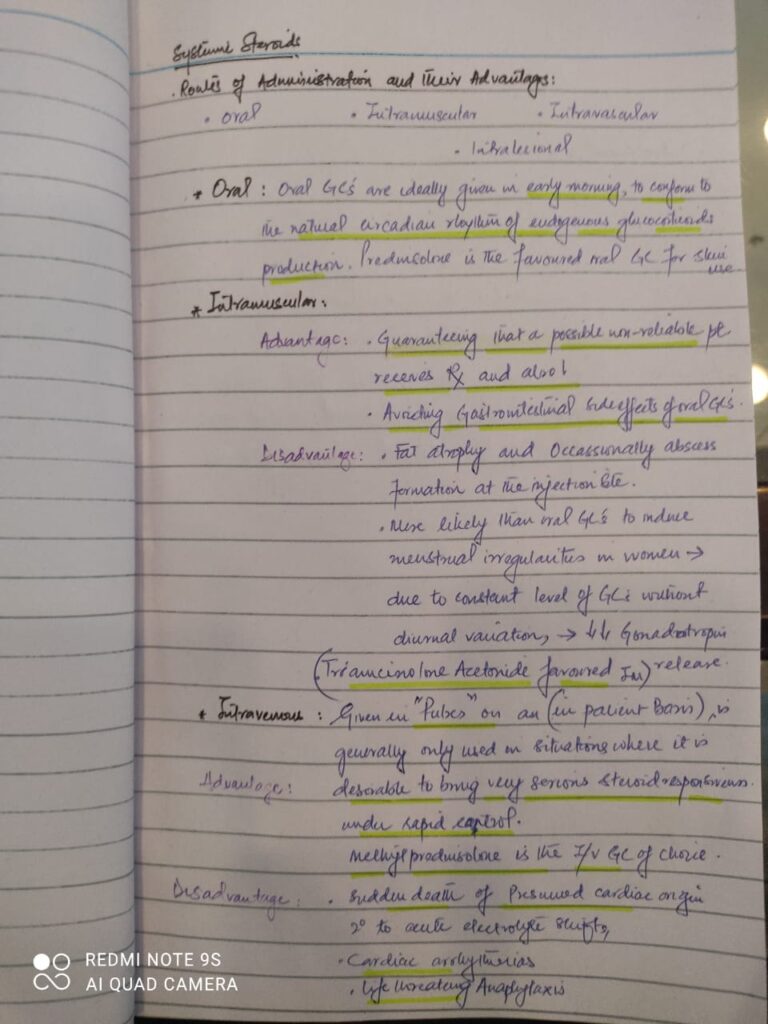 Systemic Steroids
. Routes of Administration and their Advantages:
• Oral • Intramuscular • Intravascular
• Intralesional
* Oral : Oral GCs are ideally given in early morning, to conform to
the natural circadian rhythm of endogenous glucocorticoids
production. Prednisolone is the favoured oral GC for skin
use
* Intramuscular:
Advantage: • Guaranteeing that a possible non-reliable pt
receives Rx and also
• Avoiding Gastrointestinal side effects of oral GCs.
Disadvantage: • Fat atrophy and Occassionally abscess
formation at the injection site.
• More likely than oral GCs to induce
menstrual irregularities in women →
due to constant level of GCs without
diurnal variation, → ↓↓ Gonadotropin
release.
(Triamcinolone Acetonide favoured IM)
* Intravenous : Given in "Pulses" on an (in patient Basis), is
generally only used in situations where it is
Advantage: desirable to bring very serious steroid responsiveness
under rapid control.
Methylprednisolone is the I/V GC of choice.
Disadvantage: • Sudden death of Presumed cardiac origin
2° to acute electrolyte shifts,
• Cardiac arrhythmias
• Life threatening Anaphylaxis
REDMI NOTE 9S
AI QUAD CAMERA